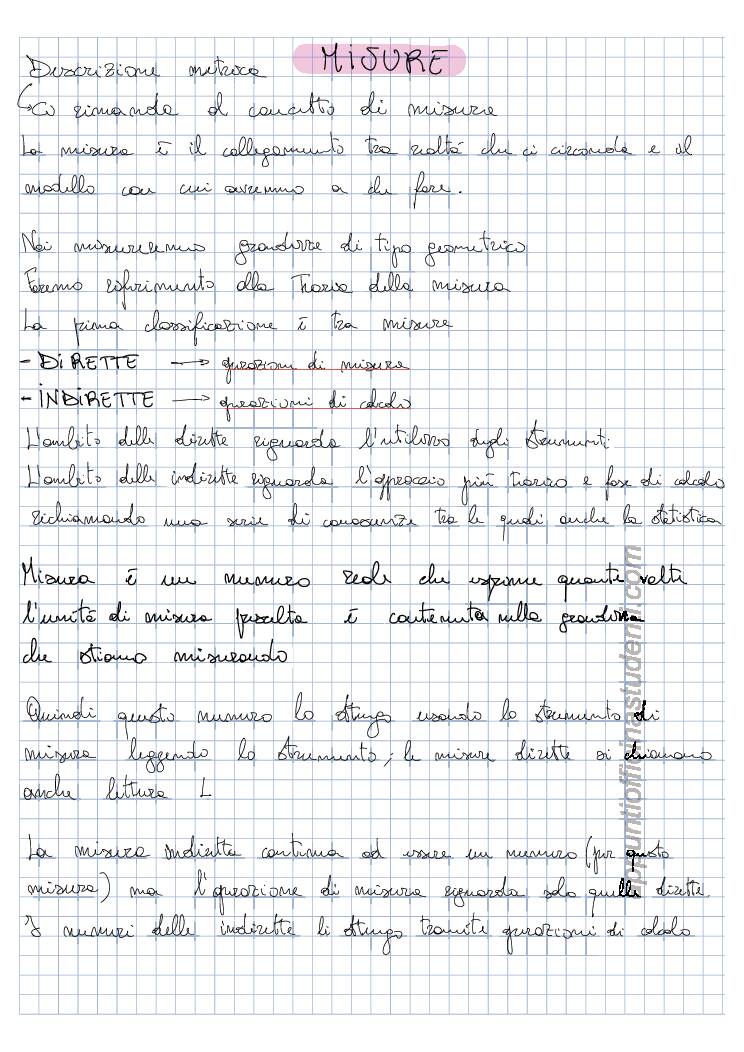 MISURE
Descrizione metrica
↳ Ci rimanda al concetto di misura
La misura è il collegamento tra realtà che ci circonda e il
modello con cui avremmo a che fare.
Noi misureremo grandezze di tipo geometrico
Faremo riferimento alla Teoria della misura
La prima classificazione è tra misure
- DIRETTE → operazioni di misura
- INDIRETTE → operazioni di calcolo
L'ambito delle dirette riguarda l'utilizzo degli strumenti
L'ambito delle indirette riguarda l'approccio più teorico e fase di calcolo
richiamando una serie di conoscenze tra le quali anche la statistica
Misura è un numero reale che esprime quante volte
l'unità di misura prescelta è contenuta nella grandezza
che stiamo misurando
Quindi questo numero lo ottengo usando lo strumento di
misura leggendo lo strumento; le misure dirette si chiamano
anche letture L
La misura indiretta continua ad essere un numero (per questo
misura) ma l'operazione di misura riguarda solo quelle dirette.
I numeri delle indirette li ottengo tramite operazioni di calcolo
appuntiofficinastudenti.com